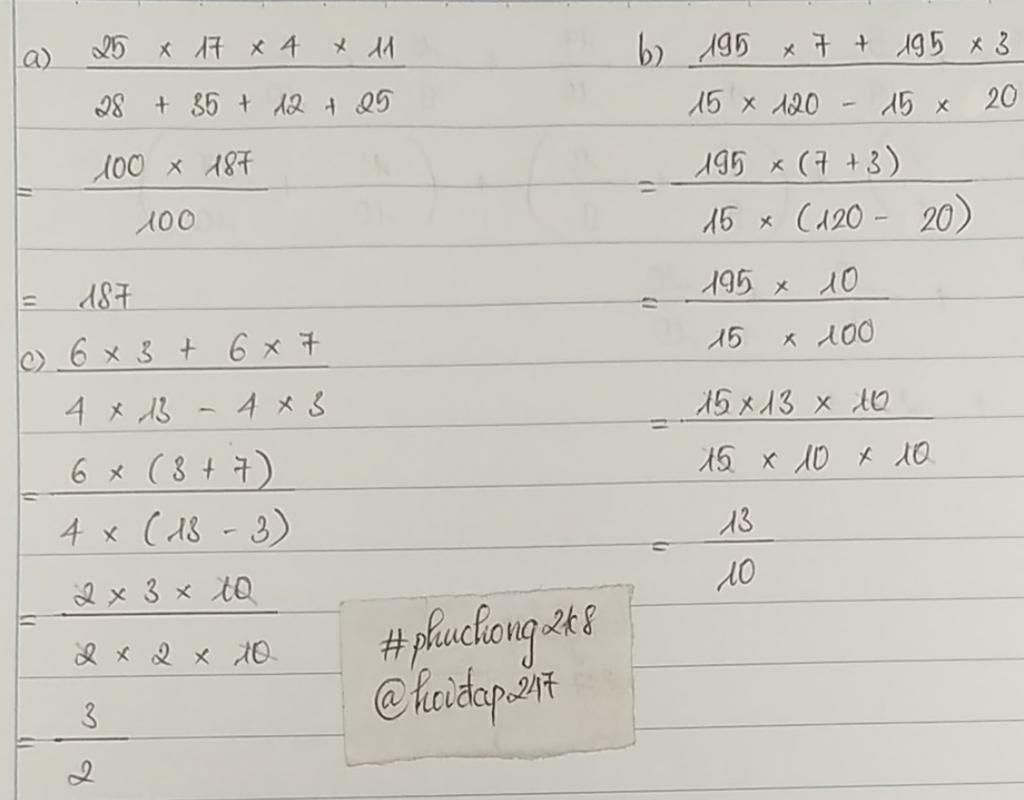 a) 25 × 17 × 4 × 11
28 + 35 + 12 + 25
= 100 × 187
100
= 187
c) 6 × 3 + 6 × 7
4 × 13 - 4 × 3
= 6 × (3 + 7)
4 × (13 - 3)
= 2 × 3 × 10
2 × 2 × 10
= 3
2
b) 195 × 7 + 195 × 3
15 × 120 - 15 × 20
= 195 × (7 + 3)
15 × (120 - 20)
= 195 × 10
15 × 100
= 15 × 13 × 10
15 × 10 × 10
= 13
10
#phuchong2k8
@hoidap247